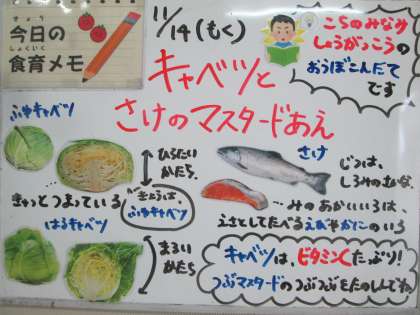 きょう
今日の
しょくいく
食育メモ
11/14(もく)
こちらのみなみ
しょうがっこうの
おうぼこんだて
です
キャベツと
さけのマスタードあえ
ふゆキャベツ
ひらたい
かたち。
ぎゅっとつまっている
きょうは、
ふゆキャベツ
はるキャベツ
まるい
かたち
さけ
じつは、
しろみのさかな
みのあかいいろは、
えさとしてたべるえびやかにのいろ
キャベツは、ビタミンCたっぷり!
つぶマスタードのつぶつぶをたのしんでね